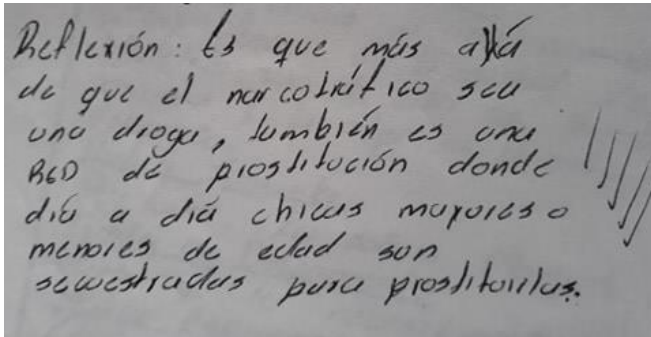 Reflexión: Es que más allá
de que el narcotráfico sea
una droga, también es una
RED de prostitución donde
día a día chicas mayores o
menores de edad son
secuestradas para prostituirlas.